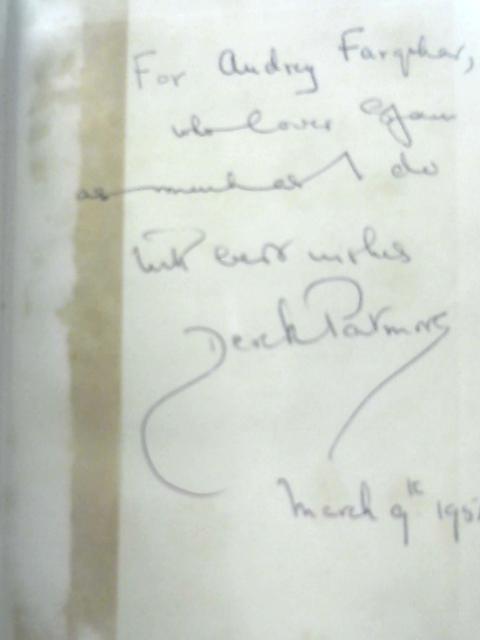 For Audrey Farquhar,
who loves Spain
as much as I do
with best wishes
Derek Patmore
March 9th 195